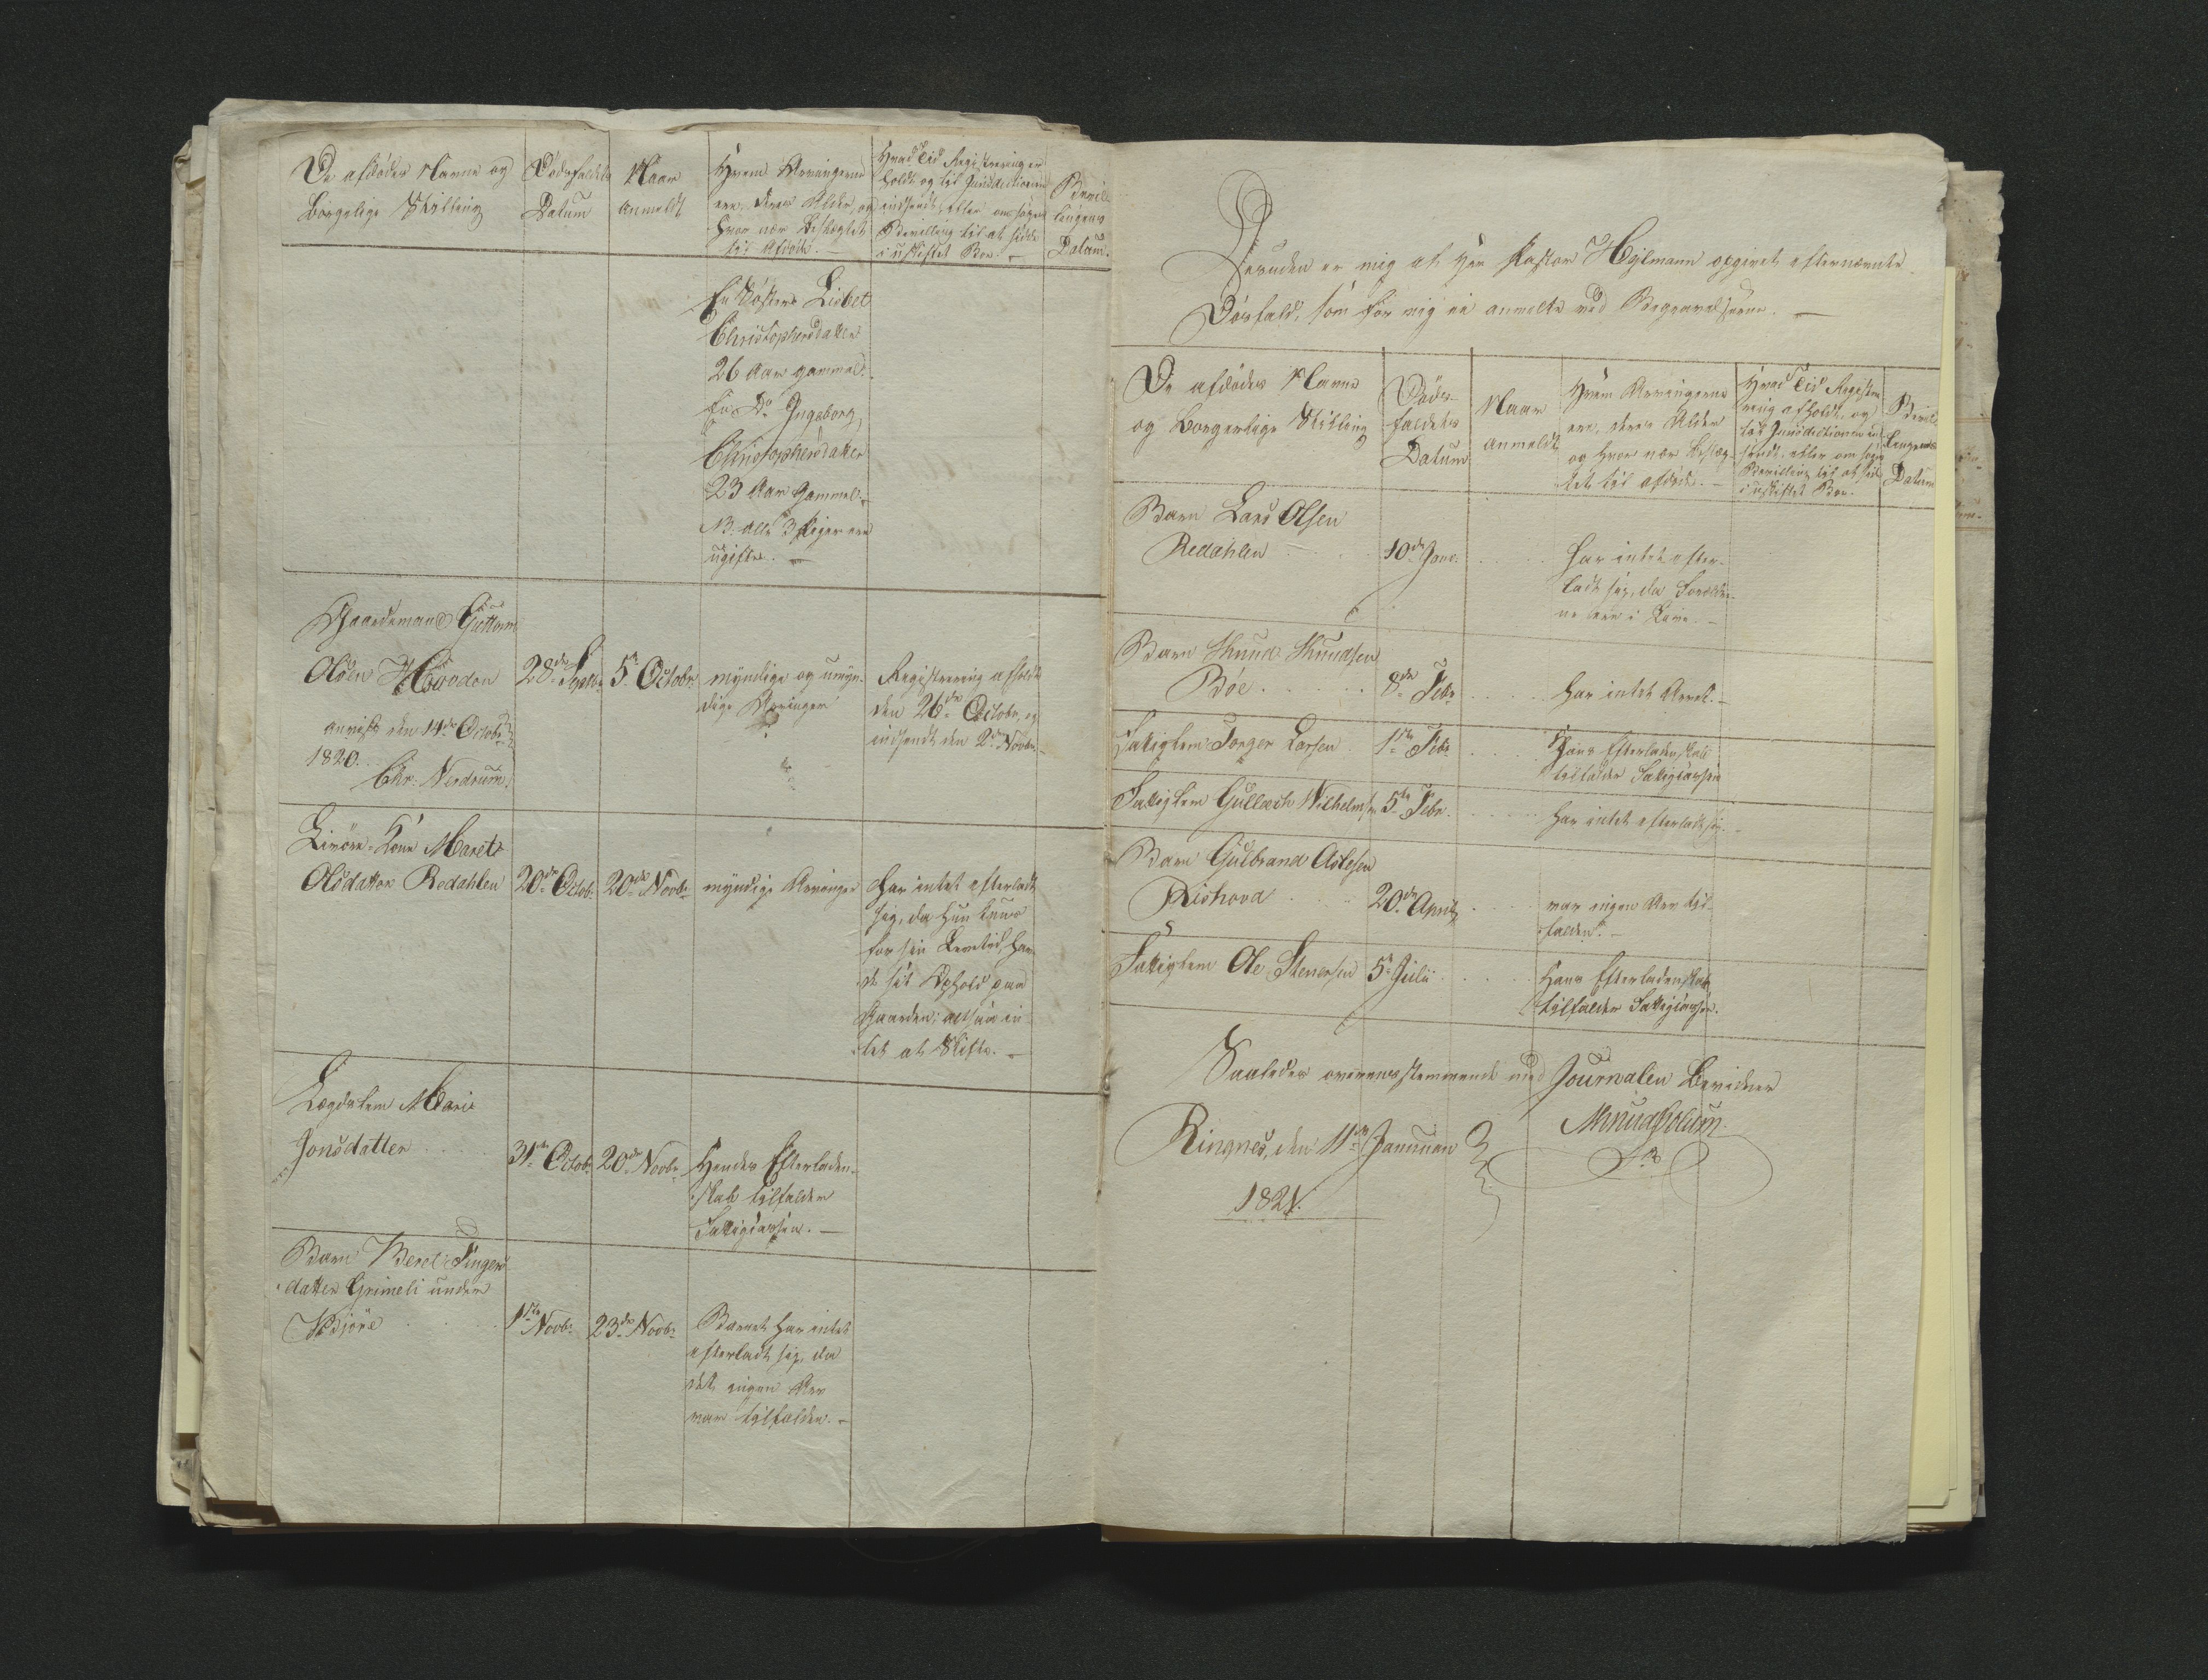 De afdödes Navne og
borgelige Stilling
Dödsfaldets
Datum
Naar
anmeldt
Hvem Arvingerne
ere, deres Alder, og
hvor nær beslægtet
til Afdöde. —
Hvad Tid Registrering er
holdt og til Jurisdictionen
indsendt, eller om söges
Bevilling til at sidde
i uskiftet Boe. —
Bevil-
lingens
Datum.
En Söster Lisbet
Christophersdatter
26 Aar gammel.
En Do Ingeborg
Christophersdatter
23 Aar Gammel.
NB. alle 3 Piger ere
ugifte. —
Gaardmand Guttorm
Olsen
28de Septbr.
5te Octobr.
myndige og umyn-
dige Arvinger
Registrering afholdt
den 26de Octobr, og
indsendt den 2den Novbr.
anvist den 14de Octobr
1820.
Chr: Nerdrum.
Livöre-Kone Marete
Olsdatter Redahlen
20de Octob.
20de Novbr.
myndige Arvinger
har intet efterladt
sig, da hun kuns
for sin Levetid hav-
de sit Ophold paa
Gaarden; altsaa in-
tet at Skifte. —
Lægdslem Marie
Jonsdatter
31te Octob.
20de Novbr.
Hendes Efterladen-
skab tilfalder
Fattigcassen. —
Barn Berel Finger
datter Grimeli under
Kjöre
1ste Novbr.
23de Novbr.
Barnet har intet
efterladt sig, da
det ingen Arv
var tilfalden. —
Desuden er mig af Hr Pastor Hejlmann opgivet efternævnte
Dösfald, som for mig ei anmeldte ved Begravelserne. —
De afdödes Navne
og Borgerlige Stilling
Döds-
faldets
Datum
Naar
anmeldt
Hvem Arvingerne
ere, deres Alder
og hvor nær beslæg-
tet til afdöde. —
Hvad Tid Registre-
ring afholdt, og
til Jurisdictionen ind-
sendt, eller om söges
Bevilling til at sidde
i uskiftet Boe.
Bevil-
lingens
Datum
Barn Lars Olsen
Redahlen
10de Janr.
har intet efter-
ladt sig, da Forældre-
ne ere i Live. —
Barn Knud Knudsen
Böe
8de Febr
har intet Arvet. —
Fattiglem Torger Larsen
1ste Febr
Hans Efterladenskab
tilfalder Fattigcassen
Fattiglem Gullech Wilhelmsen
5te Febr.
har intet efterladt sig. —
Barn Gulbrand Aslesen
Rishovd
20de April
var ingen Arv til-
falden. —
Fattiglem Ole Stenersen
5te Julii
Hans Efterladenskab
tilfalder Fattigcassen.
Saaledes overensstemmende med Journalen bevidner
Ringnes, den 11te Januari
1821.